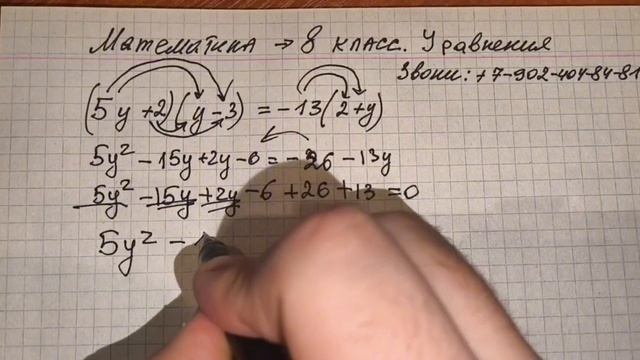 Математика → 8 класс. Уравнения
Звони: +7-902-404-84-81
(5y+2)(y-3) = -13(2+y)
5y² - 15y + 2y - 6 = - 26 - 13y
5y² - 15y + 2y - 6 + 26 + 13 = 0
5y² -